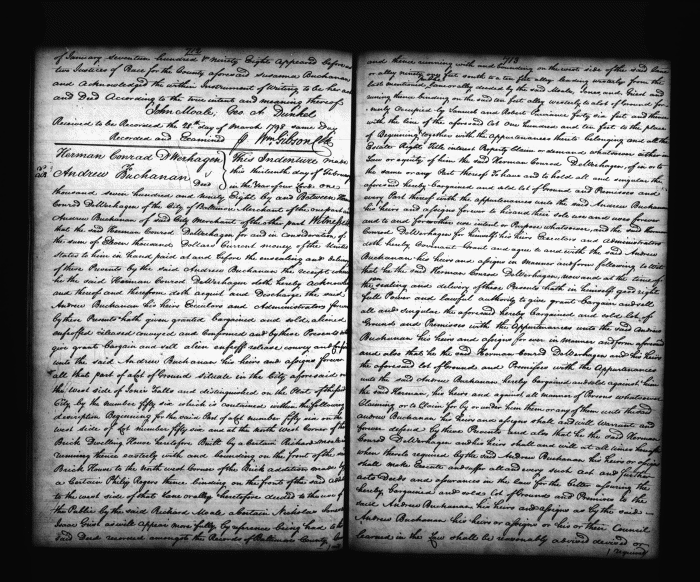 712
of January seventeen hundred & Ninety Eight appeared before
two Justices of Peace for the County aforesaid Susanna Buchanan
and acknowledged the within Instrument of Writing to be her act
and Deed According to the true intent and meaning thereof
John Moale, Geo. A. Dunkel
Received to be Recorded the 28th day of March 1798 same day
Recorded and Examined Wm Gibson Clk
Herman Conrad DWerhagen
Deed
Andrew Buchanan
This Indenture made
this thirteenth day of February
in the Year of our Lord one
thousand seven hundred and ninety Eight by and Between Herman
Conrad DeWerhagen of the City of Baltimore Merchant of the one part
Andrew Buchanan of said City Merchant of the other part Witnesseth
that the said Herman Conrad DeWerhagen for and in consideration of
the sum of Eleven thousand Dollars Current money of the United
states to him in hand paid at and before the ensealing and delivery
of these Presents by the said Andrew Buchanan the receipt whereof
he the said Herman Conrad DeWerhagen doth hereby acknowledge
and thereof and therefrom doth acquit and Discharge the said
Andrew Buchanan his heirs Executors and Administrators forever
by these Presents hath given granted bargained and sold aliened
enfeoffed released conveyed and confirmed and by these Presents doth
give grant bargain and sell alien enfeoff release convey and confirm
unto the said Andrew Buchanan his heirs and assigns forever
all that part of a Lot of Ground situate in the City aforesaid on
the West side of Jones Falls and distinguished on the Plat of the said
City by the number fifty six which is contained within the following
description Beginning for the said Part of Lot number fifty six on the
West side of Lot number fifty six and at the north West corner of the
Brick Dwelling House heretofore Built by a Certain Richard Moale
running thence easterly with and bounding on the front of the said
Brick House to the north west Corner of the Brick addition made by
a Certain Philip Rogers thence binding on the front of the said addition
to the west side of that lane or alley heretofore deeded to the use of
the Public by the said Richard Moale a certain Nicholas Jones
Isaac Grist as will appear more fully by reference being had to
said Deed recorded amongst the Records of Baltimore County
713
and thence running with and bounding on the west side of the said lane
or alley ninety feet south to a ten feet alley leading westerly from the
last mentioned lane or alley deeded by the said Moale, Jones, and Grist and
running thence binding on the said ten feet alley westerly to a lot of Ground
now Occupied by Samuel and Robert Purviance forty six feet and thence
with the line of the aforesaid Lot One hundred and ten feet to the place
of Beginning together with the appurtenances thereto belonging and all the
Estate Right Title interest Property Claim or demand whatsoever either in
Law or equity of him the said Herman Conrad DeWerhagen of in or to
the same or any Part thereof To have and to hold all and singular the
aforesaid hereby bargained and sold lot of Ground and Premises and
every Part thereof with the appurtenances unto the said Andrew Buchanan
his heirs and assigns forever to his and their sole use and uses forever
and to and for no other use intent or Purpose whatsoever, and the said Herman
Conrad DeWerhagen for himself his heirs Executors and administrators
doth hereby Covenant Grant and agree to and with the said Andrew
Buchanan his heirs and assigns in Manner and form following to Wit
that he the said Herman Conrad DeWerhagen now and at the time of
the sealing and delivery of these Presents hath in himself good right
full Power and lawful authority to give grant bargain and sell
all and singular the aforesaid hereby bargained and sold lot of
Ground and Premises with the Appurtenances unto the said Andrew
Buchanan his heirs and assigns for ever in Manner and form aforesaid
and also that he the said Herman Conrad DeWerhagen and his heirs
the aforesaid lot of Ground and Premises with the Appurtenances
unto the said Andrew Buchanan hereby bargained and sold against him
the said Herman, his heirs and against all manner of Persons whatsoever
Claiming or to Claim for by or under him them or any of them unto the said
Andrew Buchanan his heirs and assigns shall and will warrant and
forever defend by these Presents and also that he the said Herman
Conrad DeWerhagen and his heirs shall and will at all times hereafter
when thereto required by the said Andrew Buchanan his heirs or assigns
shall make Execute and suffer all and every such act and further
acts Deeds and assurances in the law for the better assuring the
hereby bargained and sold lot of Ground and Premises to the
said Andrew Buchanan his heirs and assigns as by the said
Andrew Buchanan his heirs or assigns or his or their Council
learned in the Law shall be reasonably advised devised or
required